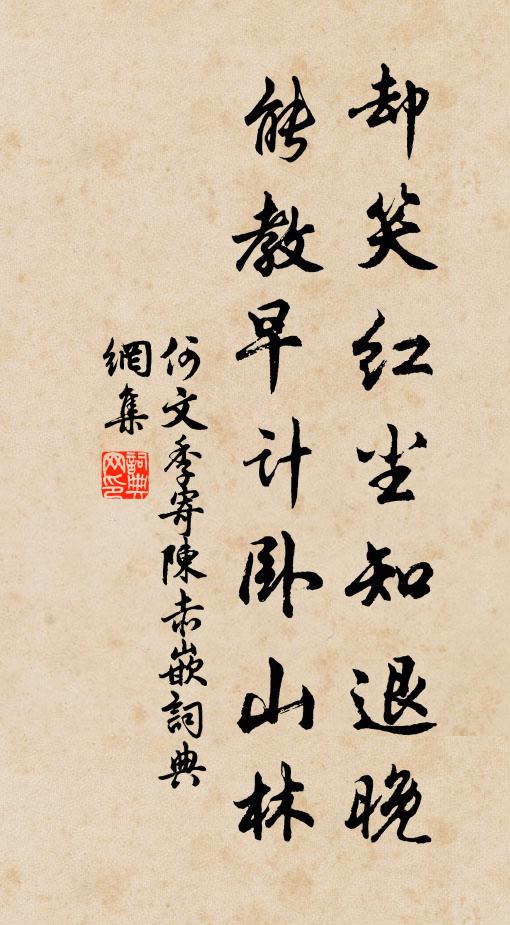 却笑红尘知退晚
能教早计卧山林
何文季寄陳赤嵌詞典
網集
詞典網印